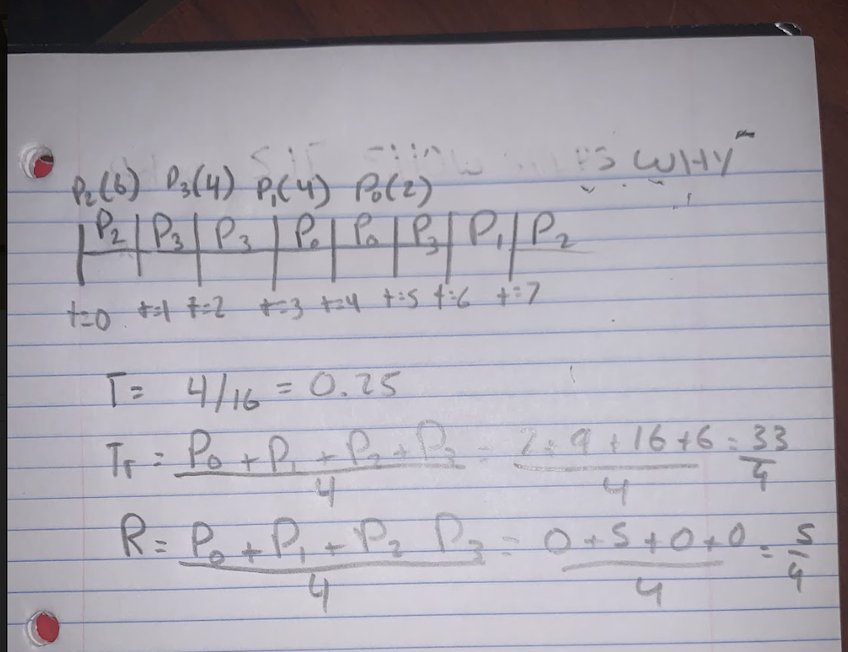 WHY
P₂(6) P₃(4) P₁(4) P₀(2)
P₂ P₃ P₃ P₀ P₀ P₃ P₁ P₂
t=0 t=1 t=2 t=3 t=4 t=5 t=6 t=7
T = 4/16 = 0.25
Tᵣ = P₀ + P₁ + P₂ + P₃ / 4 = 2 + 9 + 16 + 6 / 4 = 33/4
R = P₀ + P₁ + P₂ P₃ / 4 = 0 + 5 + 0 + 0 / 4 = 5/4